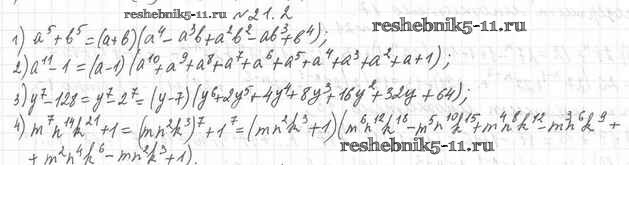 reshebnik5-11.ru №21.2
reshebnik5-11.ru
1) a⁵+b⁵=(a+b)(a⁴-a³b+a²b²-ab³+b⁴);
2) a¹¹-1=(a-1)(a¹⁰+a⁹+a⁸+a⁷+a⁶+a⁵+a⁴+a³+a²+a+1);
3) y⁷-128=y⁷-2⁷=(y-7)(y⁶+2y⁵+4y⁴+8y³+16y²+32y+64);
4) m⁷n¹⁴k²¹+1=(mn²k³)⁷+1⁷=(mn²k³+1)(m⁶n¹²k¹⁸-m⁵n¹⁰k¹⁵+m⁴n⁸k¹²-m³n⁶k⁹+
+m²n⁴k⁶-mn²k³+1).
reshebnik5-11.ru